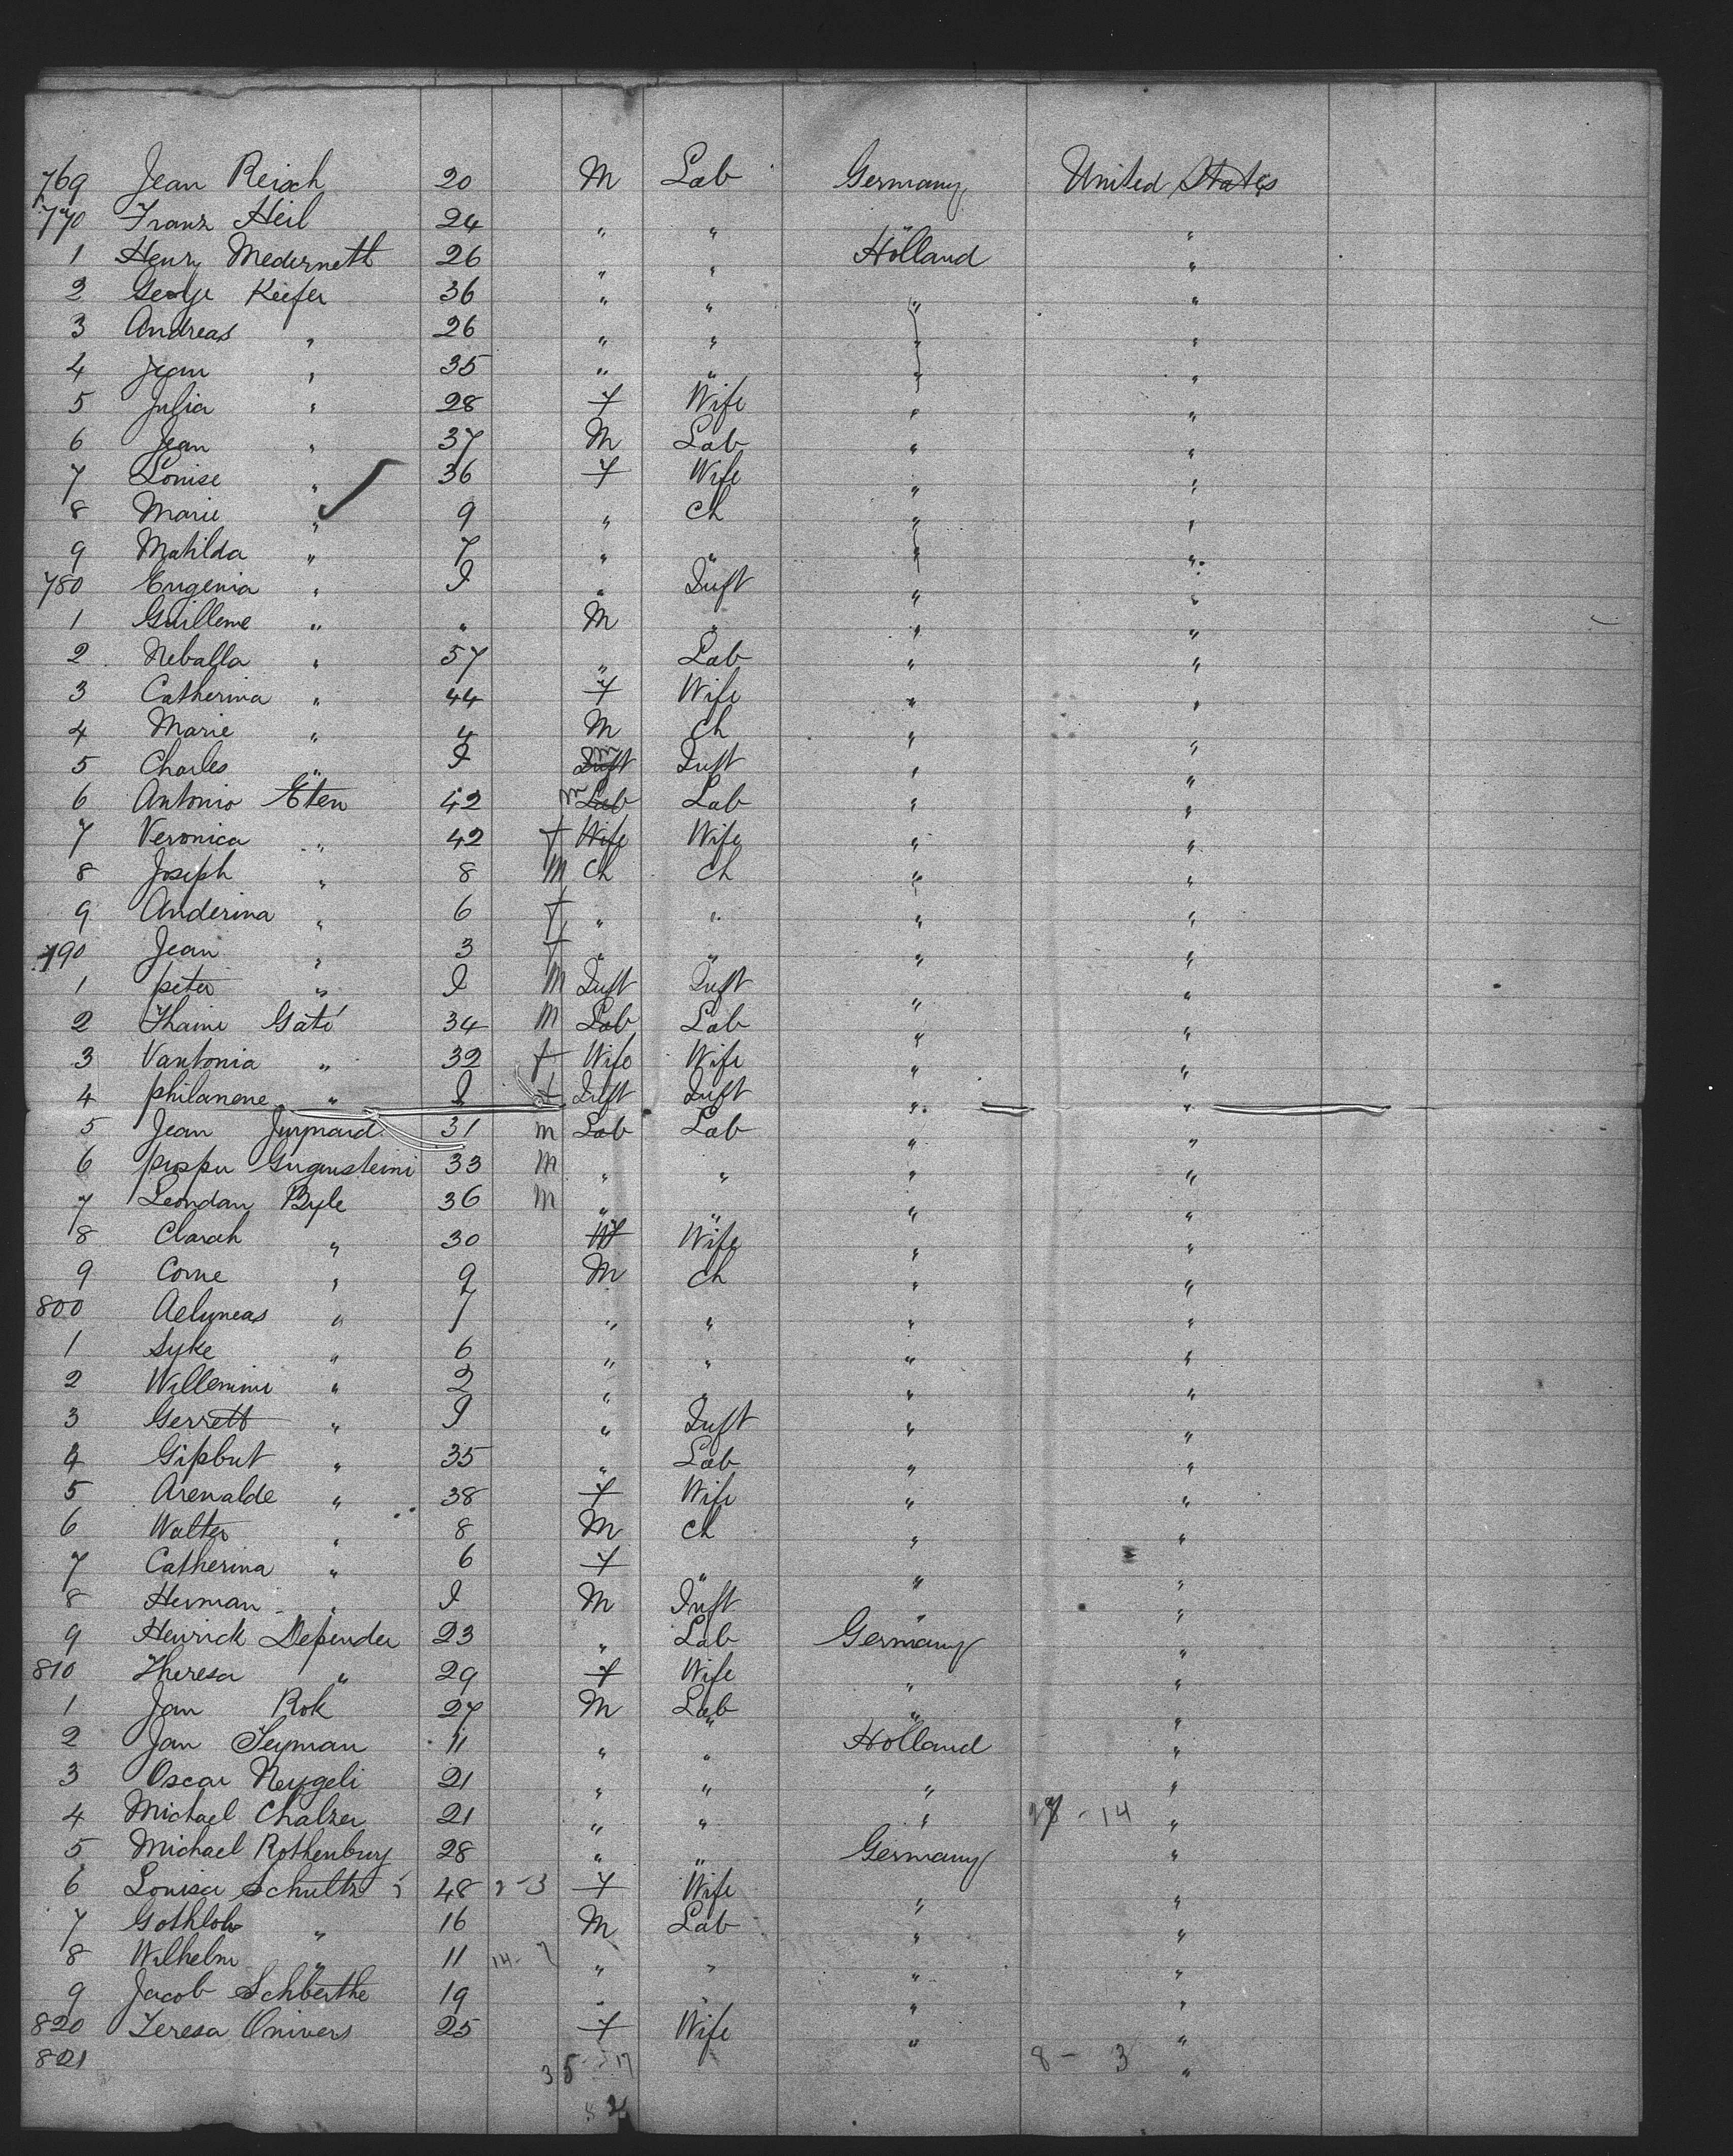 769 Jean Reisch 20 M Lab Germany United States
770 Franz Heil 24 " " " "
1 Henry Mederneth 26 " " Holland "
2 George Keefer 36 " " " "
3 Andreas " 26 " " " "
4 Jean " 35 " " " "
5 Julia " 28 f Wife " "
6 Jean " 37 M Lab " "
7 Louise " 36 f Wife " "
8 Marie " 9 " Ch " "
9 Matilda " 7 " " " "
780 Eugenia " I " Inft " "
1 Guilleme " " M " " "
2 Neballa " 57 " Lab " "
3 Catherina " 44 f Wife " "
4 Marie " 4 M Ch " "
5 Charles " I Inft m Inft " "
6 Antonio Eten 42 m Lab Lab " "
7 Veronica " 42 f Wife Wife " "
8 Joseph " 8 M Ch Ch " "
9 Anderina " 6 f " " " "
790 Jean " 3 f " " " "
1 peter " I M Inft Inft " "
2 Thaine Gaté 34 M Lab Lab " "
3 Vantonia " 32 f Wife Wife " "
4 philanene " I f Inft Inft " "
5 Jean 31 m Lab Lab " "
6 33 M " " " "
7 Leondan Byle 36 M " " " "
8 Clarah " 30 Wife " "
9 Corne " 9 M Ch " "
800 Aelyneas " 7 " " " "
1 Syke " 6 " " " "
2 Willemine " 2 " " " "
3 Gerrett " I " Inft " "
4 Gipbut " 35 " Lab " "
5 Arenalde " 38 f Wife " "
6 Walter " 8 M Ch " "
7 Catherina " 6 f " " "
8 Herman " I M Inft " "
9 Henrick Depender 23 " Lab Germany "
810 Theresa " 29 f Wife " "
1 Jan Rok 27 M Lab " "
2 Jan Seyman 11 " " Holland "
3 Oscar Neygeli 21 " " " "
4 Michael Chalzer 21 " " " - 14 "
5 Michael Rothenburg 28 " " Germany "
6 Louisa Schultz 48 2-3 f Wife " "
7 Gothlob " 16 M Lab " "
8 Wilhelm " 11 14-7 " " " "
9 Jacob Schberthe 19 " " " "
820 Teresa Onivers 25 f Wife " "
821 35 - 17 8 - 3 "